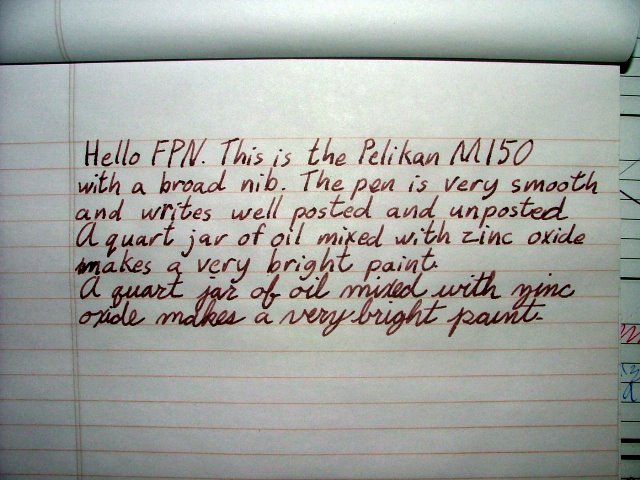 Hello FPN. This is the Pelikan M150
with a broad nib. The pen is very smooth
and writes well posted and unposted
A quart jar of oil mixed with zinc oxide
makes a very bright paint.
A quart jar of oil mixed with zinc
oxide makes a very bright paint.